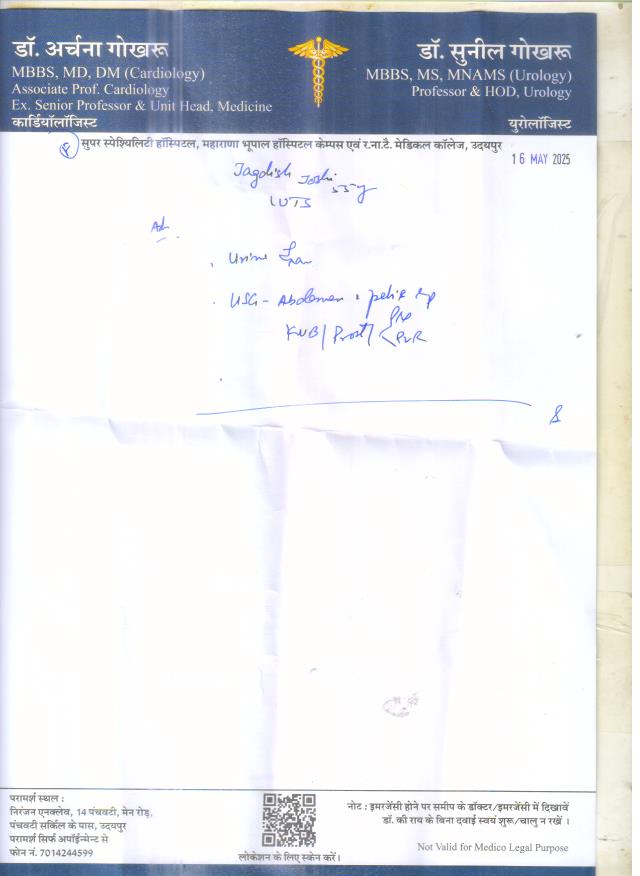 डॉ. अर्चना गोखरू
MBBS, MD, DM (Cardiology)
Associate Prof. Cardiology
Ex. Senior Professor & Unit Head, Medicine
कार्डियॉलॉजिस्ट
डॉ. सुनील गोखरू
MBBS, MS, MNAMS (Urology)
Professor & HOD, Urology
युरोलॉजिस्ट
सुपर स्पेश्यिलिटी हॉस्पिटल, महाराणा भूपाल हॉस्पिटल केम्पस एवं र.ना.टै. मेडिकल कॉलेज, उदयपुर
16 MAY 2025
Jagdish Joshi 55y
LUTS
Adv
Urine
USG - Abdomen
KUB / Prost / PVR
परामर्श स्थल :
निरंजन एनक्लेव, 14 पंचवटी, मेन रोड़,
पंचवटी सर्किल के पास, उदयपुर
परामर्श सिर्फ अपॉईन्मेन्ट से
फोन नं. 7014244599
लोकेशन के लिए स्केन करें।
नोट : इमरजेंसी होने पर समीप के डॉक्टर/इमरजेंसी में दिखावें
डॉ. की राय के बिना दवाई स्वयं शुरू/चालु न रखें ।
Not Valid for Medico Legal Purpose